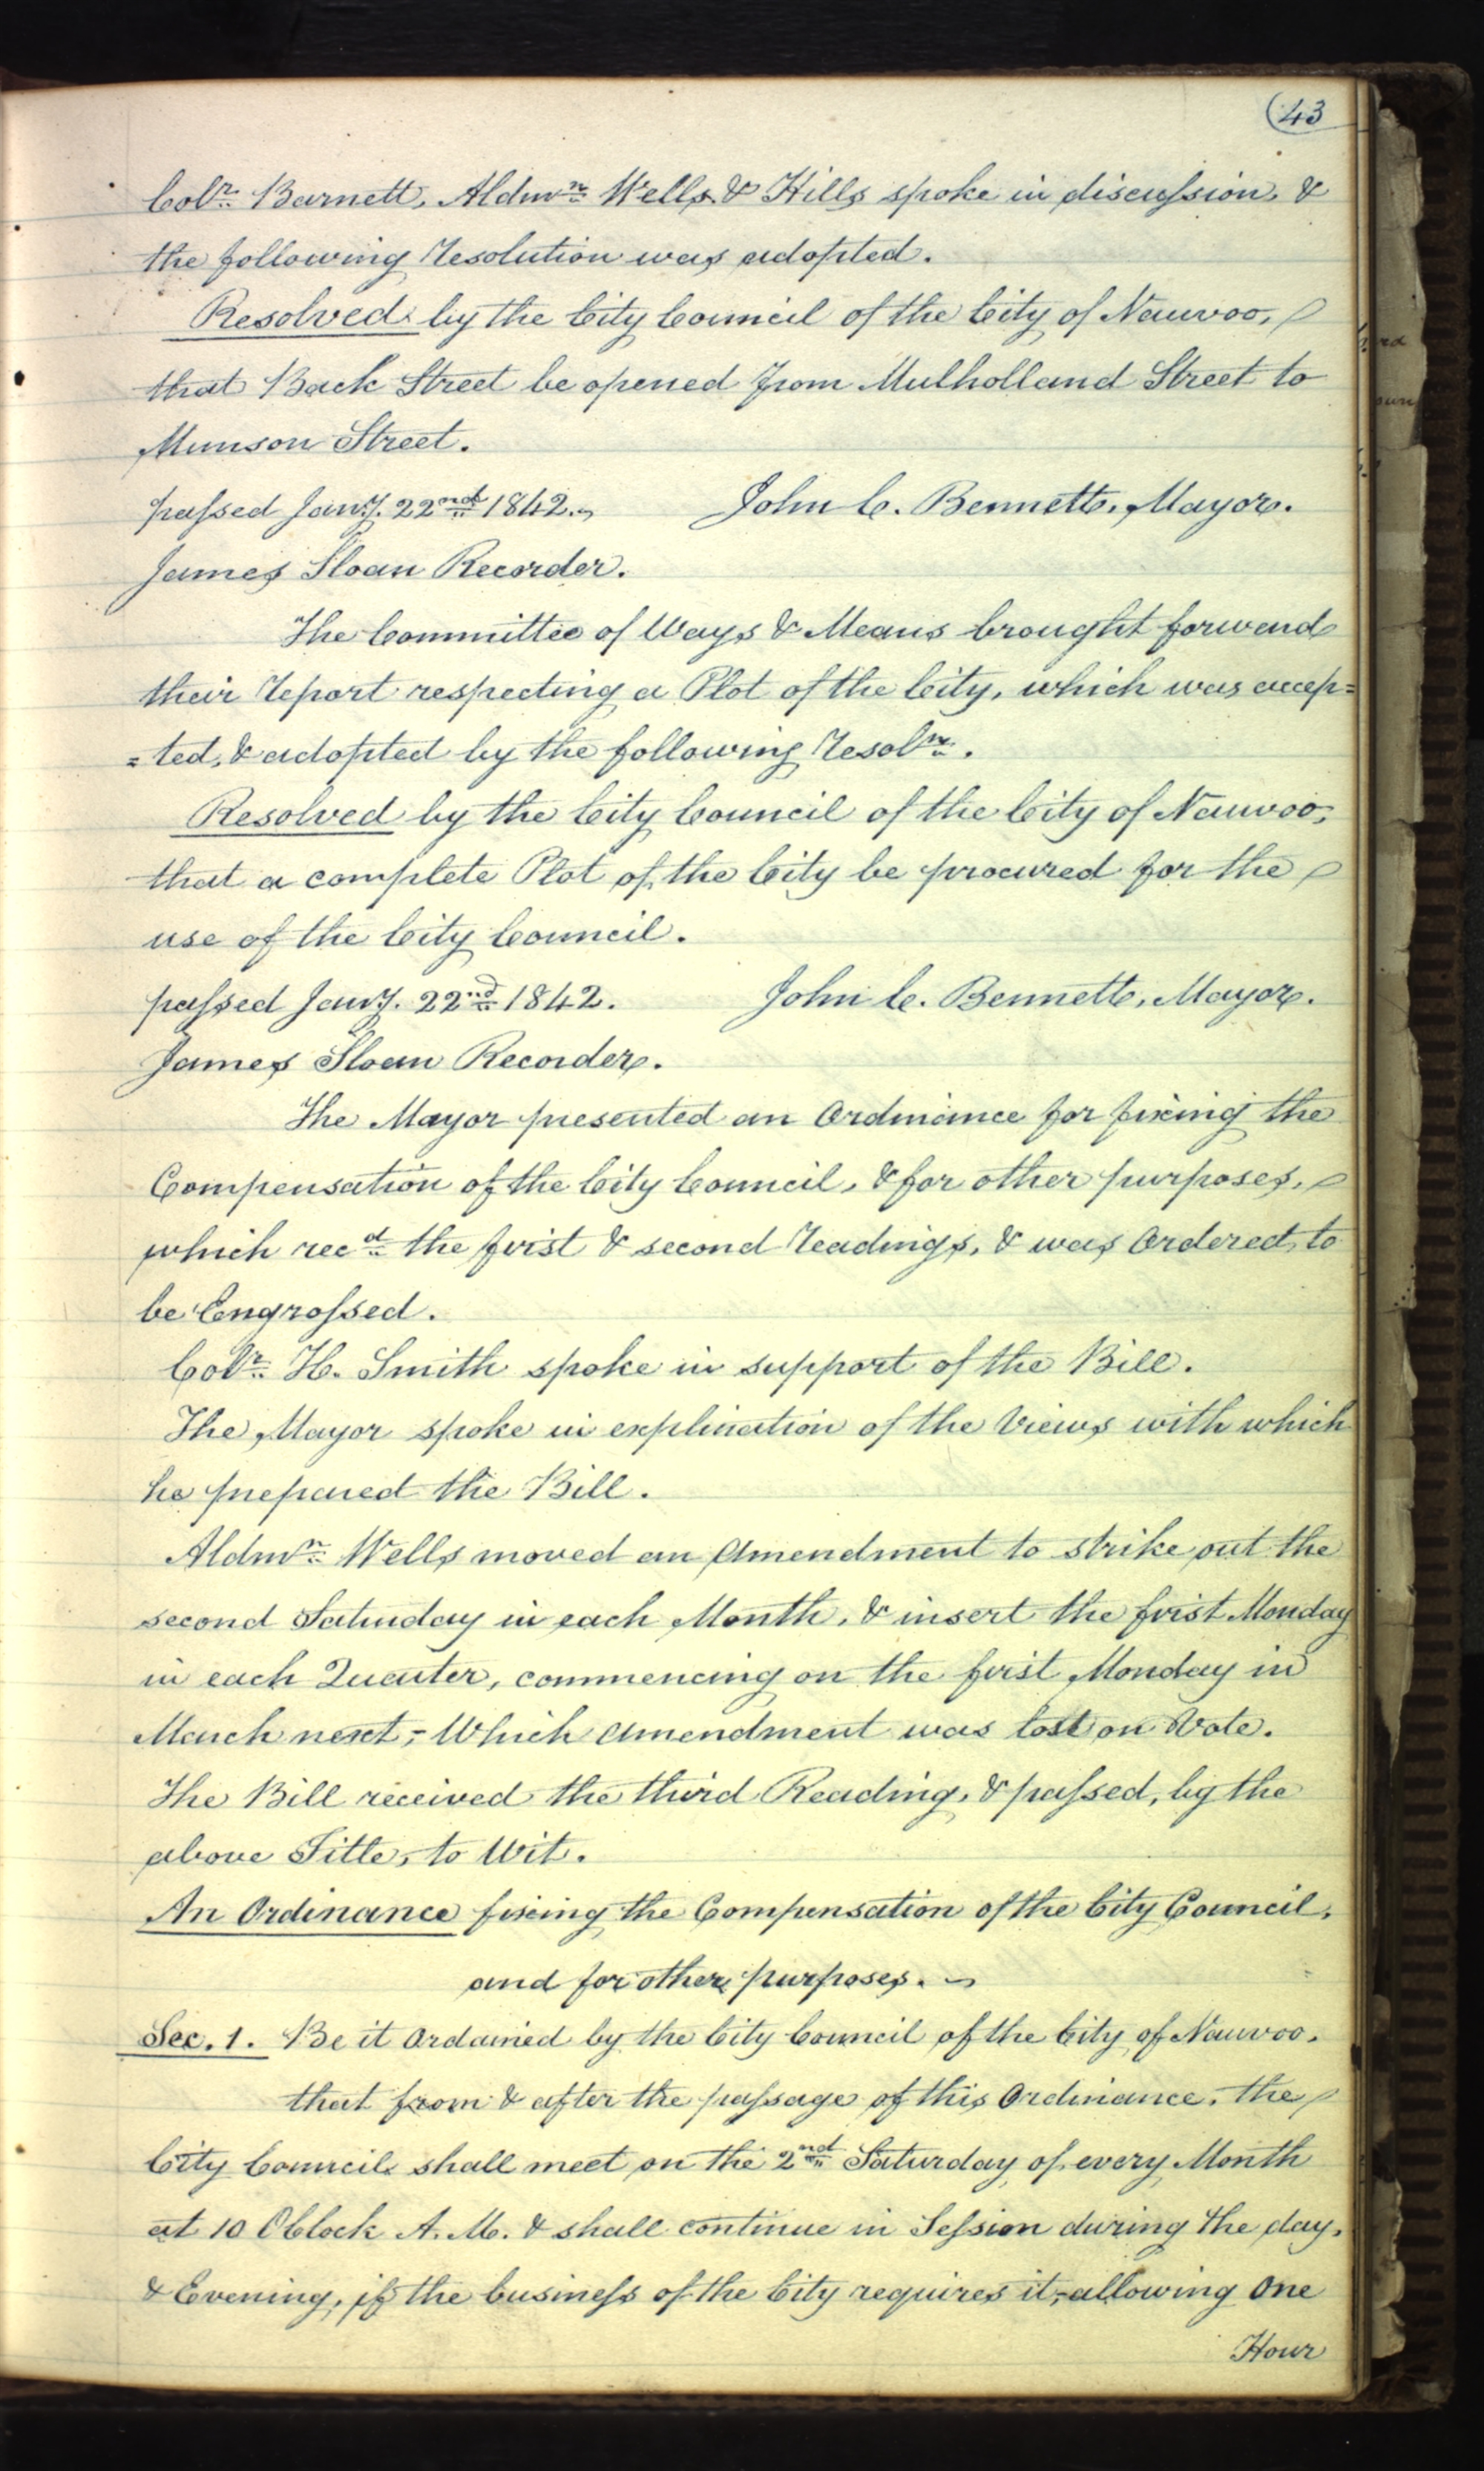 (43
Colr. Barnett, Aldmn. Wells, & Hills spoke in discussion, &
the following resolution was adopted.
Resolved by the City Council of the City of Nauvoo,
that Back Street be opened from Mulholland Street to
Munson Street.
passed Jany. 22nd 1842. John C. Bennett, Mayor.
James Sloan Recorder.
The Committee of Ways & Means brought forward
their report respecting a Plot of the City, which was accep=
=ted, & adopted by the following resoln.
Resolved by the City Council of the City of Nauvoo,
that a complete Plot of the City be procured for the
use of the City Council.
passed Jany. 22nd 1842. John C. Bennett, Mayor.
James Sloan Recorder.
The Mayor presented an Ordinance for fixing the
Compensation of the City Council, & for other purposes,
which recd. the first & second readings, & was Ordered to
be Engrossed.
Colr. H. Smith spoke in support of the Bill.
The Mayor spoke in explination of the Views with which
he prepared the Bill.
Aldmn. Wells moved an Amendment to strike out the
second Saturday in each Month, & insert the first Monday
in each Quarter, commencing on the first Monday in
March next,- Which Amendment was lost on Vote.
The Bill received the third Reading, & passed, by the
above Title, to Wit.
An Ordinance fixing the Compensation of the City Council,
and for other purposes.
Sec. 1. Be it Ordained by the City Council of the City of Nauvoo,
that from & after the passage of this Ordinance, the
City Council shall meet on the 2nd Saturday of every Month
at 10 OClock A.M. & shall continue in Session during the day,
& Evening, if the business of the City requires it,-allowing One
Hour